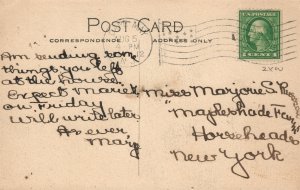 POST CARD
CORRESPONDENCE
ADDRESS ONLY
Am sending some
things you left
at the house.
Expect Marie
on Friday
Will write later
As ever
Mary
Miss Marjorie S.
Mapleshade Farm
Horseheads
New York